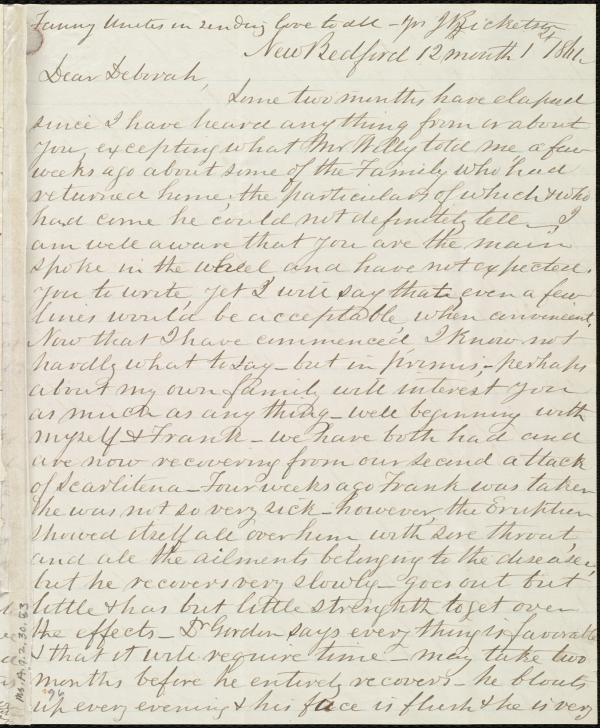 Fanny Unites in sending love to all - yrs J Ricketson
New Bedford 12 month 1st 1861
Dear Deborah,
Some two months have elapsed
since I have heard anything from or about
you, excepting what Mr Willy told me a few
weeks ago about some of the Family who had
returned home, the particulars of which & who
had come he could not definitely tell - I
am well aware that you are the main
spoke in the wheel and have not expected
you to write, yet I will say that even a few
lines would be acceptable when convenient,
Now that I have commenced I know not
hardly what to say - but in primis - perhaps
about my own family will interest you
as much as any thing - well beginning with
myself & Frank - we have both had and
are now recovering from our second attack
of Scarlitena - Four weeks ago Frank was taken
he was not so very sick - however the Eruption
showed itself all over him with sore throat
and all the ailments belonging to the disease,
but he recovers very slowly - goes out but
little & has but little strenghth to get over
the effects - Dr Gordon says every thing is favorable
& that it will require time - may take two
months before he entirely recovers - he bloats
up every evening & his face is flush & he is very
Ms. A. 9. 2. 30. 53